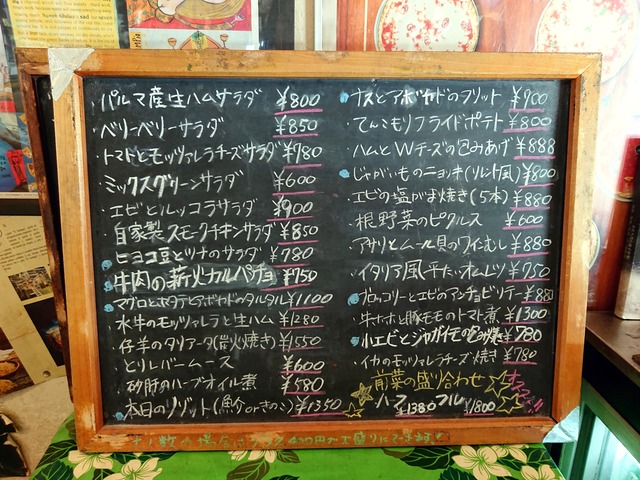 パルマ産生ハムサラダ ¥800
ベリーベリーサラダ ¥850
トマトとモッツァレラチーズサラダ ¥780
ミックスグリーンサラダ ¥600
エビとルッコラサラダ ¥900
自家製スモークチキンサラダ ¥850
ヒヨコ豆とツナのサラダ ¥780
牛肉の薪火カルパチョ ¥950
マグロとホタテとアボカドのタルタル ¥1100
水牛のモッツァレラと生ハム ¥1280
仔羊のタリアータ(炭火焼き) ¥1550
とりレバームース ¥600
砂肝のハーブオイル煮 ¥580
本日のリゾット(魚介orきのこ) ¥1350
ナスとアボカドのフリット ¥900
てんこもりフライドポテト ¥800
ハムとWチーズの包みあげ ¥888
じゃがいものニョッキ(ソレント風) ¥800
エビの塩がま焼き(5本) ¥880
根野菜のピクルス ¥600
アサリとムール貝のワインむし ¥880
イタリア風平たいオムレツ ¥750
ブロッコリーとエビのアンチョビソテー ¥880
牛ホホと豚モモのトマト煮 ¥1300
小エビとジャガイモの包み焼 ¥780
イカのモッツァレラチーズ焼き ¥780
前菜の盛り合わせ
ハーフ ¥1380 フル ¥1800